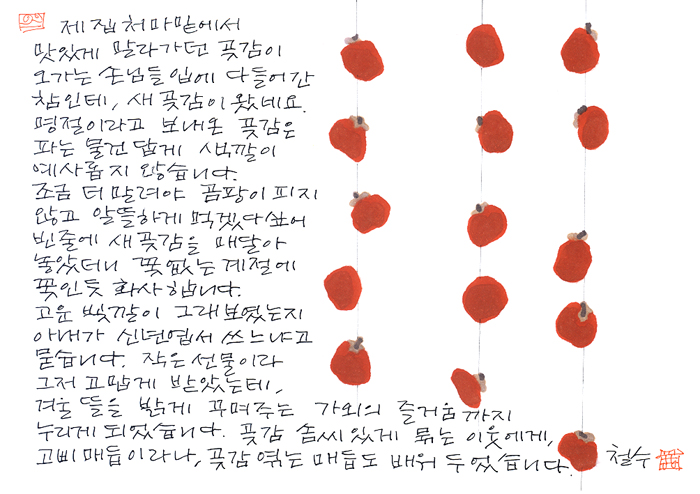 제 집 처마밑에서
맛있게 말라가던 곶감이
오가는 손님들 입에 다 들어간
참인데, 새 곶감이 왔네요.
명절이라고 보내온 곶감은
파는 물건 답게 색깔이
예사롭지 않습니다.
조금 더 말려야 곰팡이 피지
않고 알뜰하게 먹겠다 싶어
빈줄에 새 곶감을 매달아
놓았더니 꽃 없는 계절에
꽃인듯 화사합니다.
고운 빛깔이 그래 보였는지
아내가 신년엽서 쓰느냐고
묻습니다. 작은 선물이라
그저 고맙게 받았는데,
겨울 뜰을 밝게 꾸며주는 가외의 즐거움까지
누리게 되었습니다. 곶감 솜씨있게 묶는 이웃에게,
고삐매듭이라나, 곶감 엮는 매듭도 배워 두었습니다. 철수